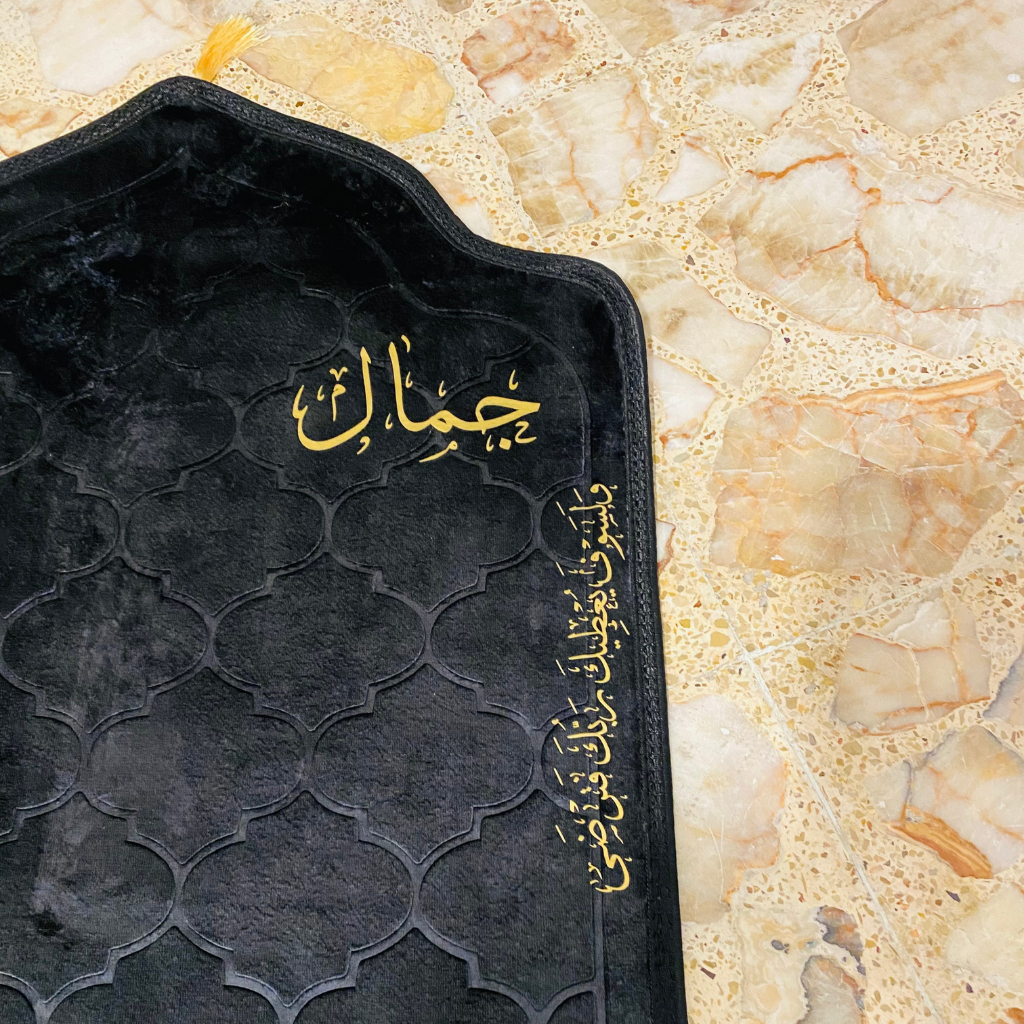 جمال
وَلَسَوْفَ يُعْطِيكَ رَبُّكَ فَتَرْضَىٰ